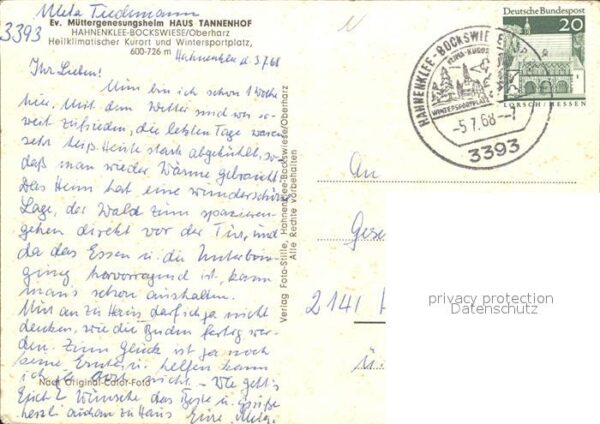 Meta Tiedemann
3393
Ev. Müttergenesungsheim HAUS TANNENHOF
HAHNENKLEE-BOCKSWIESE/Oberharz
Heilklimatischer Kurort und Wintersportplatz,
600-726 m
Hahnenklee d 3.7.68
Ihr Lieben!
Nun bin ich schon 1 Woche
hier. Mit dem Wetter sind wir so-
weit zufrieden, die letzten Tage waren
sehr heiß. Heute stark abgekühlt, so
daß man wieder Wärme gebraucht.
Das Heim hat eine wunderschöne
Lage, der Wald zum spazieren-
gehen direkt vor der Tür, und
da das Essen u. die Unterbrin-
gung hervorragend ist, kann
man's schon aushalten.
Nur an zu Haus darf ich ja nicht
denken, wie die Buden fertig wer-
den. Zum Glück ist ja noch
keine Ernte, u. helfen kann
ich ja doch nicht. - Wie geht's
Erich? Wünsche das Beste u. grüße
herzl. auch an zu Haus Eure Meta
Nach Original-Color-Foto
Verlag Foto-Stille, Hahnenklee-Bockswiese/Oberharz
Alle Rechte vorbehalten
HAHNENKLEE-BOCKSWIESE
WINTERSPORTPLATZ
-5.7.68--7
3393
Deutsche Bundespost
20
LORSCH/HESSEN
An
2141
privacy protection
Datenschutz